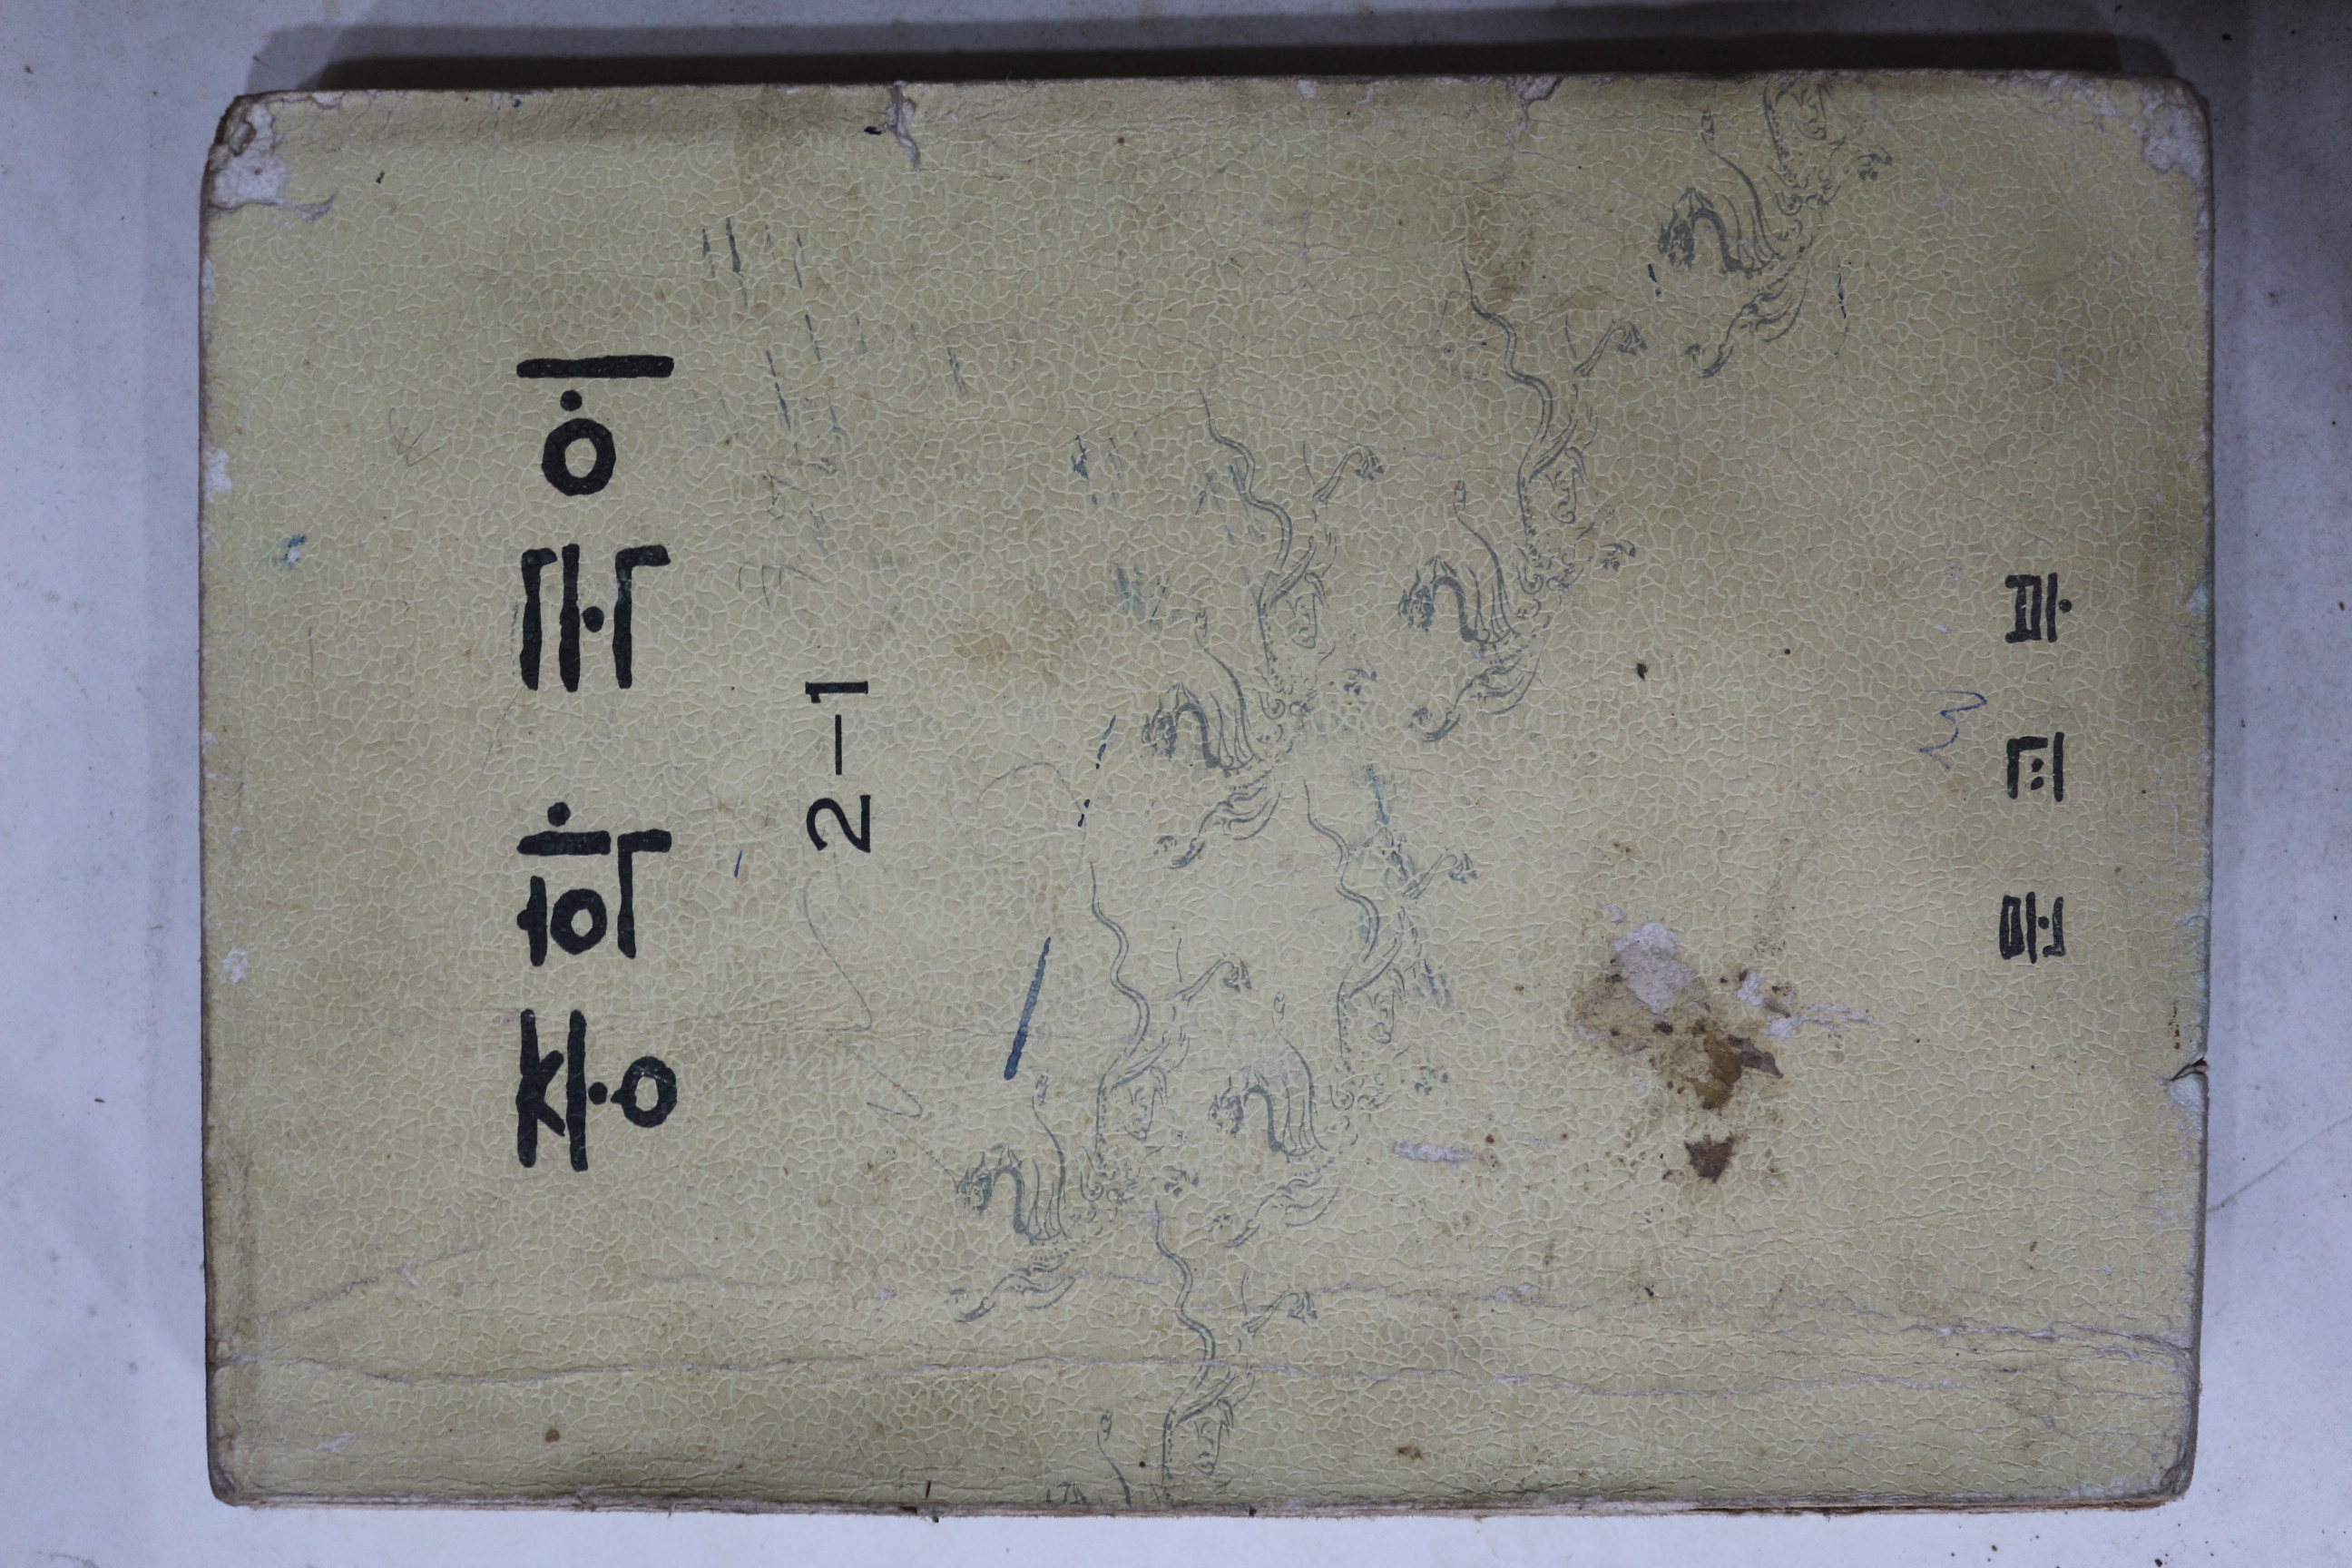 중학 국어
2-1
문교부